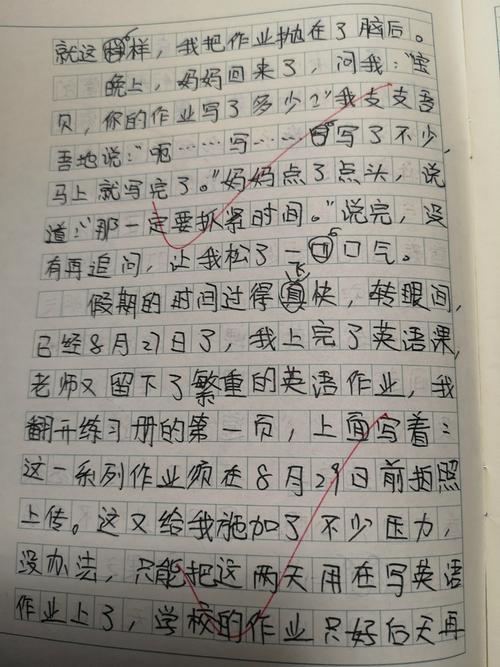 就这样，我把作业抛在了脑后。
晚上，妈妈回来了，问我："宝
贝，你的作业写了多少？"我支支吾
吾地说："呃……写……写了不少，
马上就写完了。"妈妈点了点头，说
道："那一定要抓紧时间。"说完，没
有再追问，让我松了一口气。
假期的时间过得飞快，转眼间，
已经8月27日了，我上完了英语课，
老师又留下了繁重的英语作业，我
翻开练习册的第一页，上面写着：
这一系列作业须在8月29日前拍照
上传。这又给我施加了不少压力，
没办法，只能把这两天用在写英语
作业上了，学校的作业只好后天再